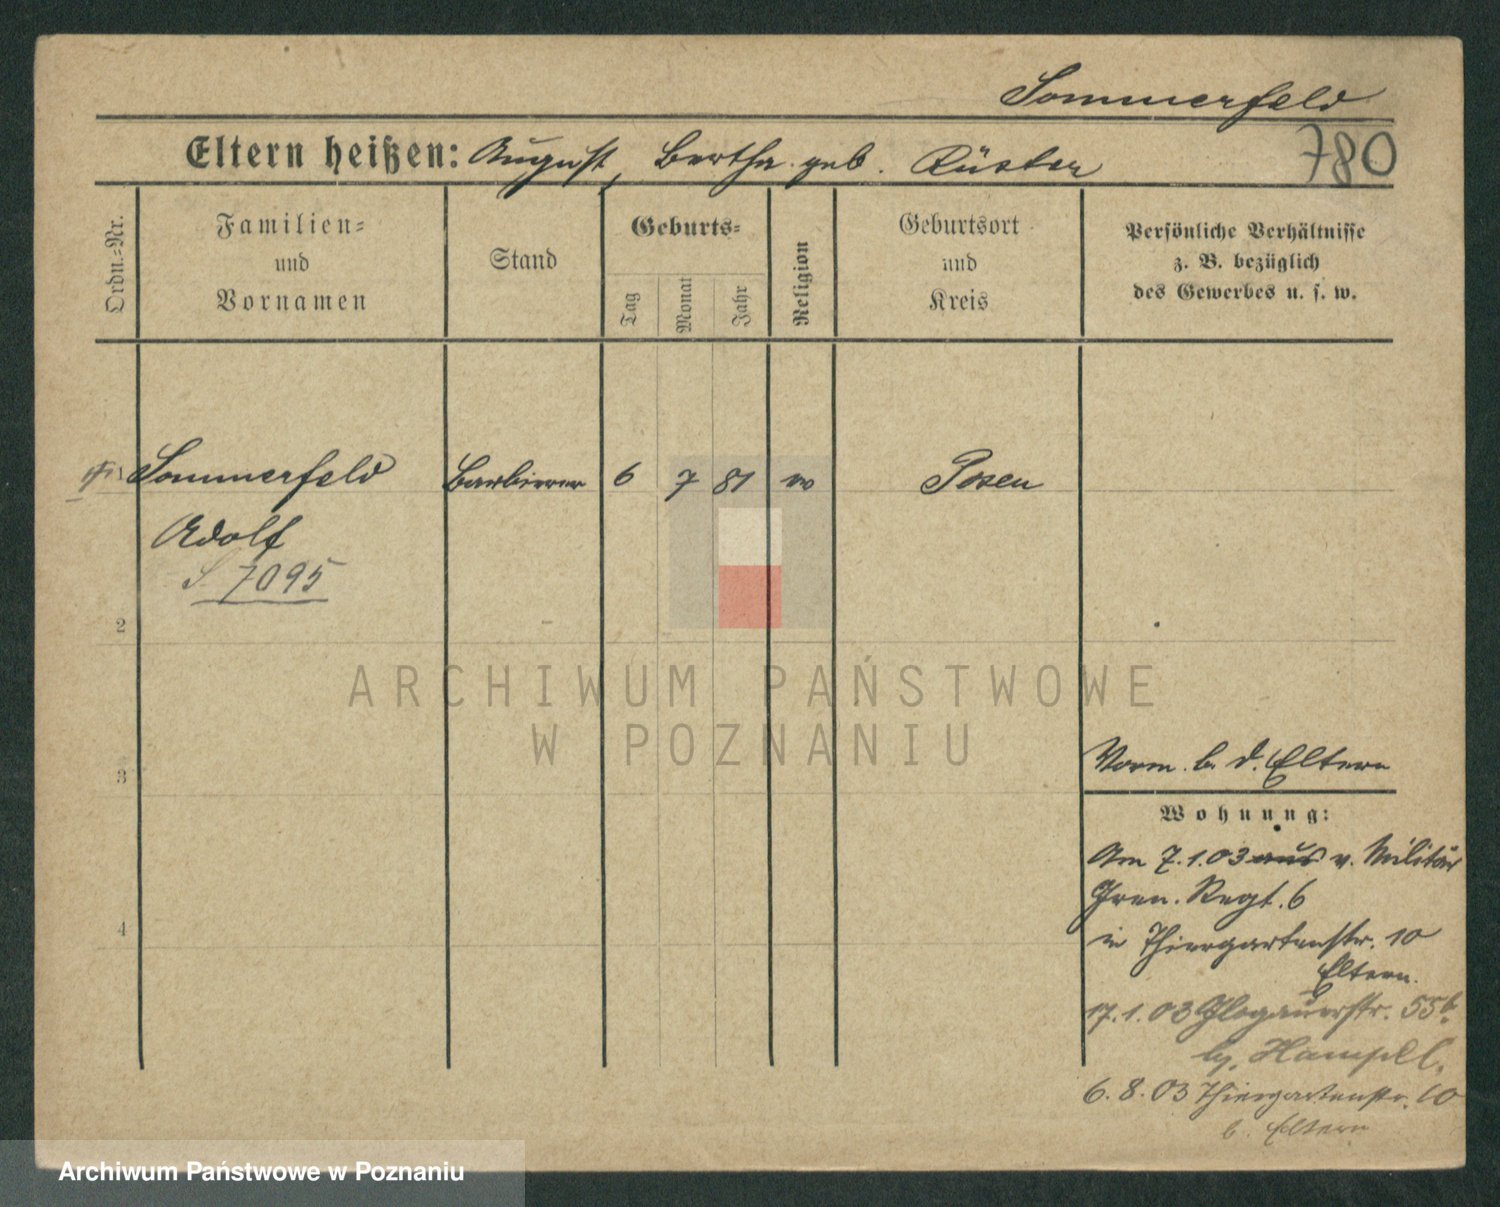 Sommerfeld
Eltern heißen: August, Bertha geb. Rüster
780
Ordn.-Nr.
Familien-
und
Vornamen
Stand
Geburts-
Tag
Monat
Jahr
Religion
Geburtsort
und
Kreis
Persönliche Verhältnisse
z. B. bezüglich
des Gewerbes u. s. w.
Sommerfeld Barbierer 6 7 81 Posen
Adolf
S 7095
2
3
4
ARCHIWUM PAŃSTWOWE
W POZNANIU
Vorm. b. d. Eltern
Wohnung:
Am 7.1.03 aus v. Militär
Gren. Regt. 6
in Thiergartenstr. 10
Eltern.
17.1.03 Glogauerstr. 55
Hampel
6.8.03 Thiergartenstr. 10
b. Eltern
Archiwum Państwowe w Poznaniu